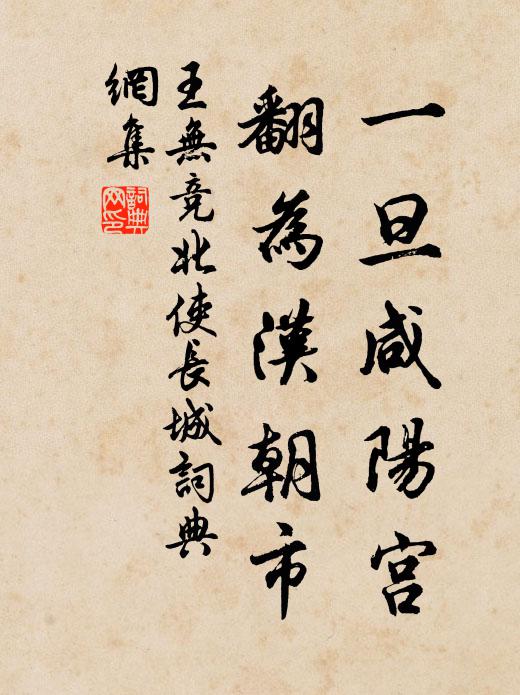 一旦咸陽宮
翻為漢朝市
王無竞北使長城詞典
網集
詞典
网印